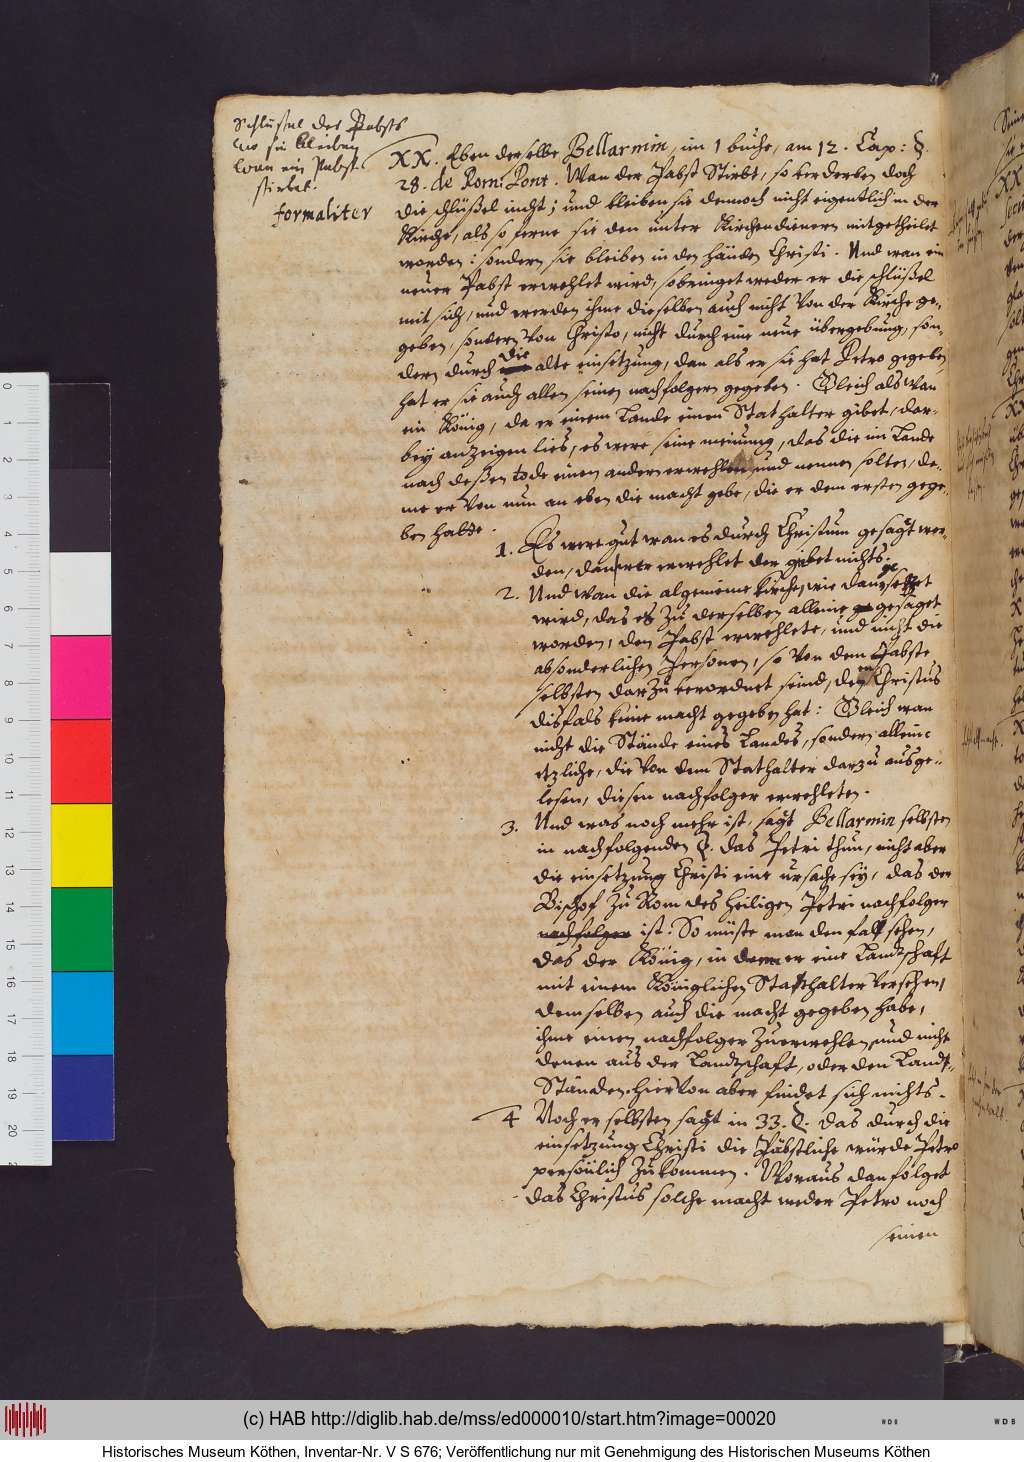 Schlüssel des Pabsts
wo sie bleiben
wan ein Pabst
stirbet.
formaliter
XX. Eben derselbe Bellarmin, im 1 buche, am 12. Cap: §.
28. de Rom: Pont. Wan der Pabst Stirbt, so verderben doch
die schlüßel nicht; und bleiben sie dennoch nicht eigentlich in der
Kirche, als so ferne sie den unter Kirchendienern mitgetheilet
worden: sondern sie bleiben in den händen Christi. Und wan ein
neuer Pabst erwehlet wird, so bringet weder er die schlüßel
mit sich, und werden ihme dieselben auch nicht von der Kirche ge-
geben, sondern von Christo, nicht durch eine neue übergebung, son-
dern durch die alte einsetzung, dan als er sie hat Petro gegeben
hat er sie auch allen seinen nachfolgern gegeben. Gleich als wan
ein König, da er einem Lande einen Stathalter gibet, dar-
bey anzeigen lies, es were seine meinung, das die im Lande
nach deßen tode einen andern erwehlen und nennen solten, de-
me er von nun an eben die macht gebe, die er dem ersten gege-
ben hatte.
1. Es were gut wan es durch Christum gesagt wor-
den, dan wer erwehlet der gibet nichts.
2. Und wan die algemeine Kirche, wie dan gesetzet
wird, das es zu derselben alleine gesaget
worden, den Pabst erwehlete, und nicht die
absonderlichen Personen, so von dem Pabste
selbsten darzu verordnet seind, den Christus
disfals keine macht gegeben hat: Gleich wan
nicht die Stände eines Landes, sondern alleine
etzliche, die von dem Stathalter darzu ausge-
lesen, diesen nachfolger erwehleten.
3. Und was noch mehr ist, sagt Bellarmin selbsten
in nachfolgenden §. das Petri thun, nicht aber
die einsetzung Christi eine ursache sey, das der
Bischof zu Rom des heiligen Petri nachfolger
nachfolger ist. So müste man den fall sehen,
das der König, in deme er eine Landschaft
mit einem Königlichen Stathalter versehen,
demselben auch die macht gegeben habe,
ihme einen nachfolger zuerwehlen, und nicht
denen aus der Landschaft, oder den Land-
Ständen. hiervon aber findet sich nichts.
4 Noch er selbsten sagt in 33. §. das durch die
einsetzung Christi die Päbstliche würde Petro
persönlich zukommen. Woraus dan folget
das Christus solche macht weder Petro noch
seinen
0
1
2
3
4
5
6
7
8
9
10
11
12
13
14
15
16
17
18
19
20
(c) HAB http://diglib.hab.de/mss/ed000010/start.htm?image=00020
Historisches Museum Köthen, Inventar-Nr. V S 676; Veröffentlichung nur mit Genehmigung des Historischen Museums Köthen